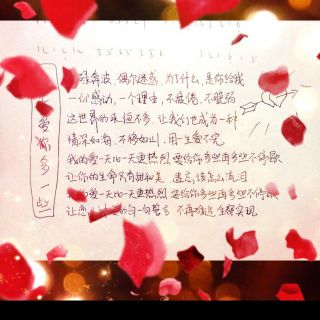 碌奔波、偶尔迷惑、为了什么、是你给我
一份感动,一个理由,不疲倦、不脆弱
这世界的永恒不多、让我们也成为一种
情深如海、不移如山、用一生爱不完
我的爱一天比一天更热烈 要给你多些再多些不停歇
让你的生命只有甜和美 遗忘该怎么流泪
的爱一天比一天更热烈 要给你多些再多些不停
让恋 的句句誓言 不再难追 全都实现
爱你多一些